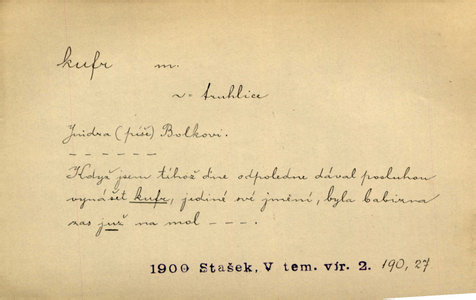 kufr m.
v= truhlice
Jindra (píše) Bolkovi.
– – – – – –
Když jsem téhož dne odpoledne dával posluhou
vynášet kufr, jediné své jmění, byla babizna
zas již na mol – – – .
1900 Stašek, V tem. vír. 2. 190, 27